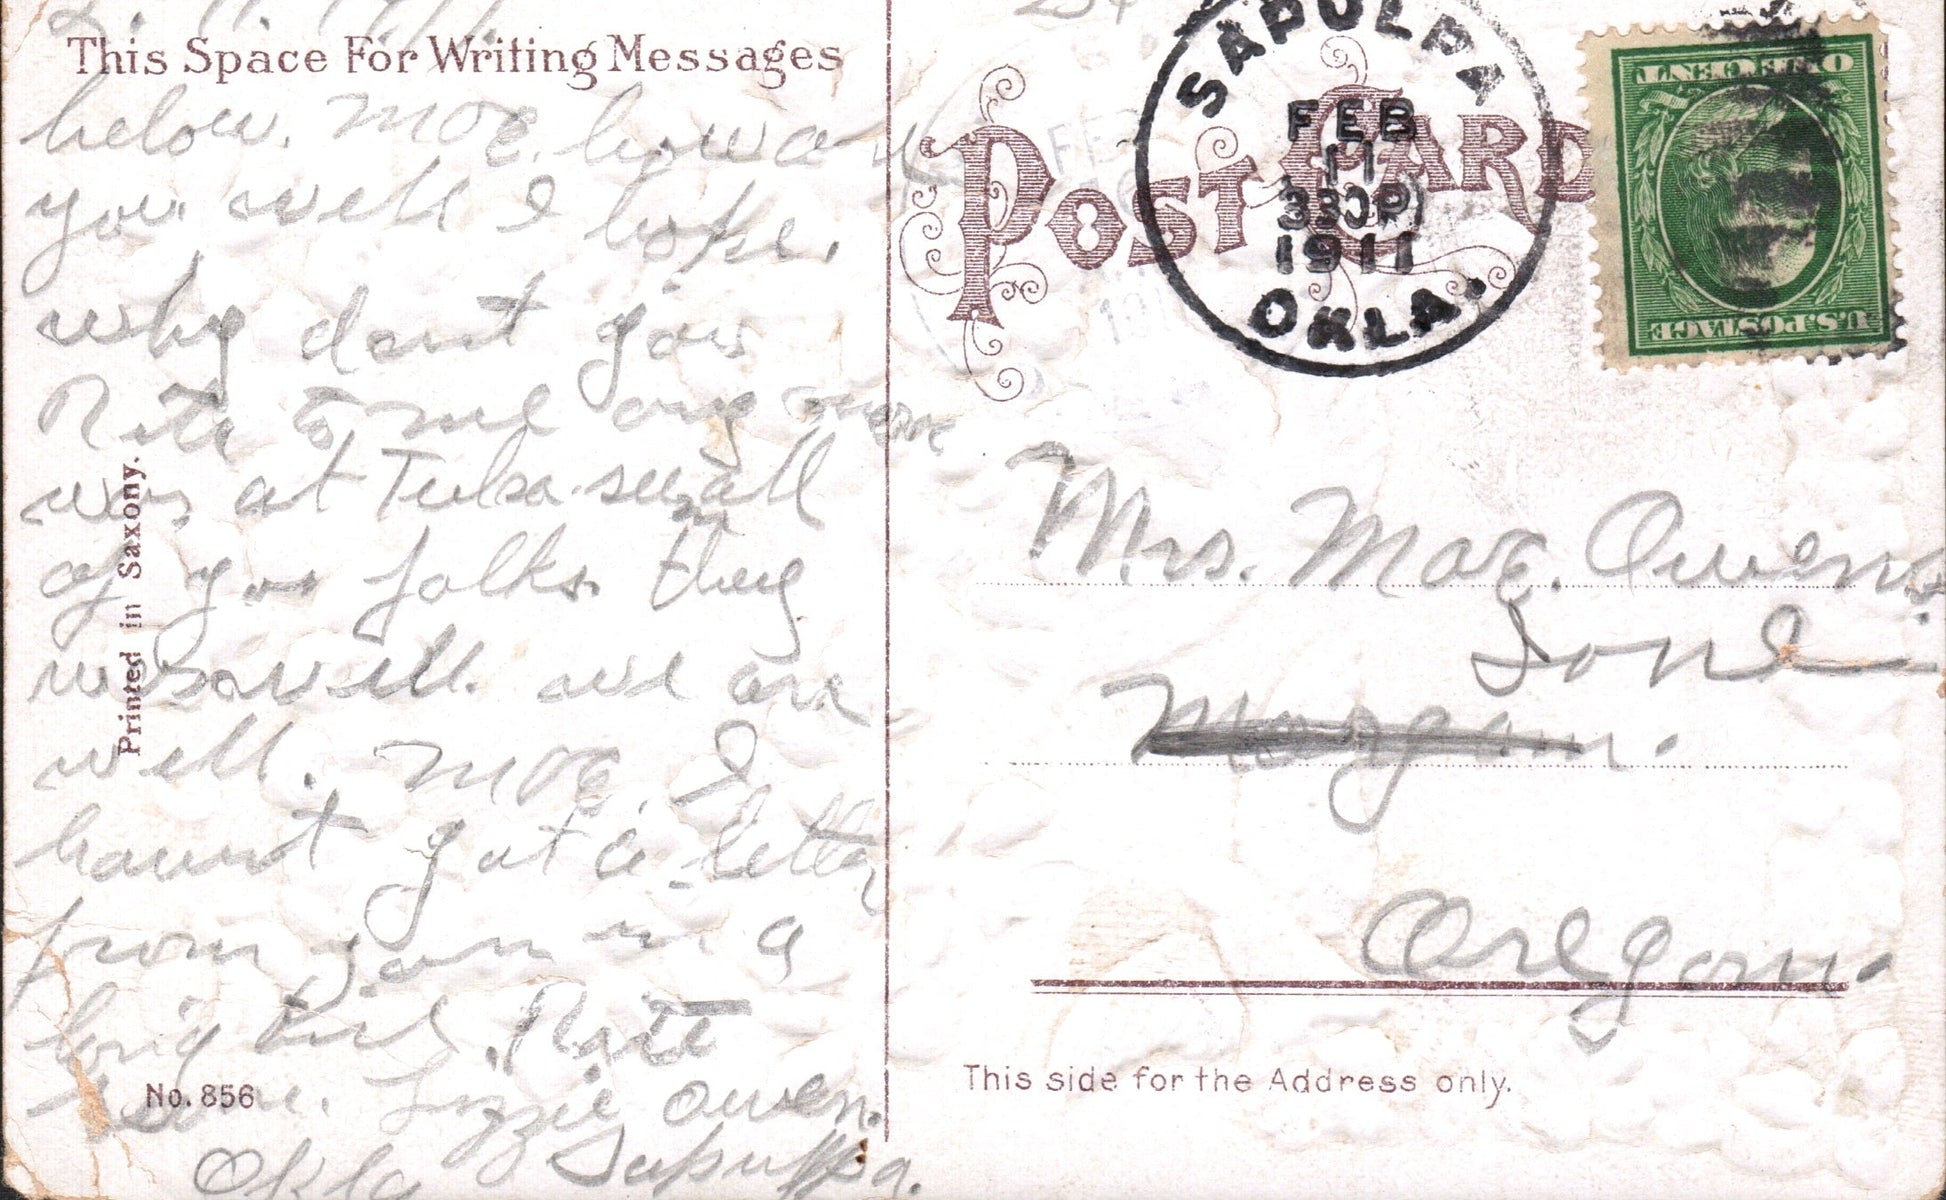 2. 11. 1911.
This Space For Writing Messages
helow. Mae. how are
you. well I hope.
why dont you
Rite to me any more
was at Tulsa. seen all
of you folks. they
was well. we are
well. Mae. I
havent got a letter
from you in a
long time. Rite
soon. Lizzie Owen.
Sapulpa.
Okla
Printed in Saxony.
No. 856
POST CARD
SAPULPA
FEB
11
330P
1911
OKLA.
ONE CENT
U.S. POSTAGE
Mrs. Mae. Owens.
Ione
Morgan.
Oregon.
This side for the Address only.